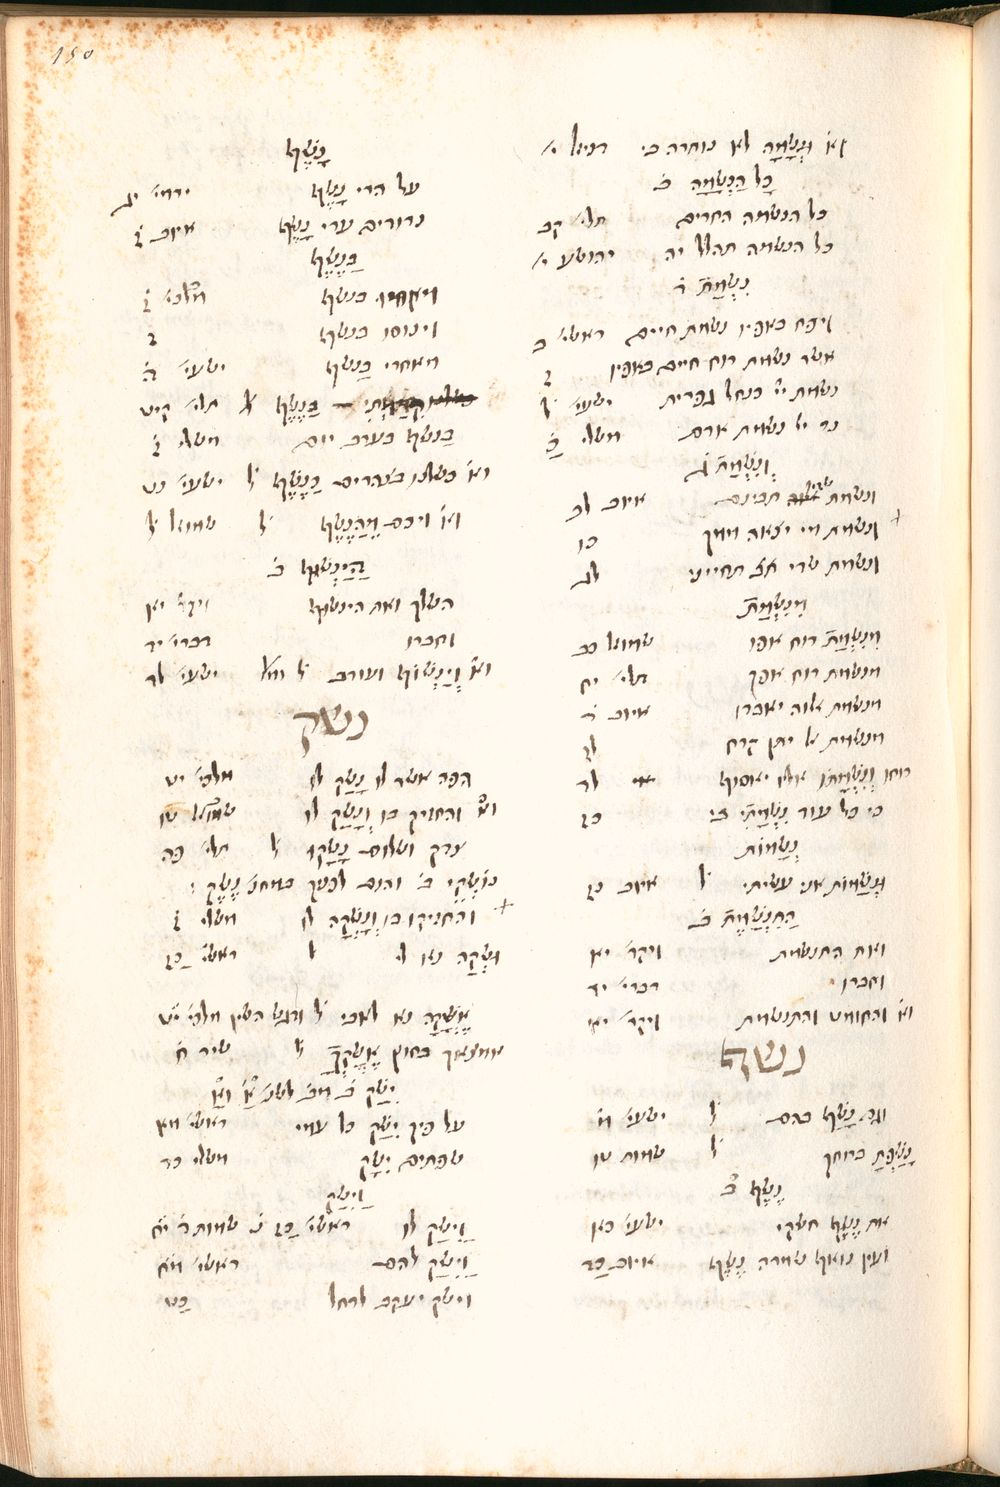 150
וא׳ וּנְשָׁמָה לא נותרה בי דניאל י׳
כָל הַנְשָׁמָה ב׳
כל הנשמה החרים תלי׳ קב
כל הנשמה תהלל יה יהושע י׳
נִשְׁמַת ר׳
ויפח באפיו נשמת חיים ראשי׳ ב
אשר נשמת רוח חיים באפיו ז
נשמת יי׳ כנחל גפרית ישעי׳ ל
נר יי׳ נשמת אדם משלי כ
וְנִשְׁמַת ג׳
ונשמת שדי תבינם איוב לב
ונשמת מי יצאה ממך כו
ונשמת שדי תחייני לג
מִנִשְׁמַת
מִנִשְׁמַת רוח אפו שמואל כב
מנשמת רוח אפך תלי׳ יח
מנשמת אלוה יאבדו איוב ד׳
מנשמת אל יתן קרח לז
רוחו וְנִשְׁמָתוֹ אליו יאסוף לד
כי כל עוד נִשְׁמָתִי בי כז
נְשָׁמוֹת
וּנְשָׁמוֹת אני עשיתי ל׳ ישעי׳ נז
הַתִנְשֶׁמֶת ב׳
ואת התנשמת ויקר׳ יא
וחברו דברי׳ יד
וא׳ והחומט והתנשמת ויקר׳ יא
נשף
וגם נָשַׁף בהם ל׳ ישעי׳ מ׳
נָשַׁפְתָ ברוחך ל׳ שמות טו
נֶשֶׁף ב׳
את נֶשֶׁף חשקי ישעי׳ כא
ועין נואף שמרה נֶשֶׁף איוב כד
נָשֶׁף
על הרי נָשֶׁף ירמי׳ יג
בַנֶשֶׁף
ויקומו בנשף מלכי׳ ז׳
וינוסו בנשף ז
מאחרי בַנשף ישעי׳ ה׳
בַנֶשֶׁף תלי׳ קיט
בַנשף בערב יום משלי ז׳
וא׳ כשלנו בצהרים כַנֶשֶׁף ל׳ ישעי׳ נט
וא׳ ויכם מֵהַנֶשֶׁף ל׳ שמואל ל
הַיַנְשׁוּף ב׳
השלך ואת הינשוף ויקר׳ יא
וחברו דברי׳ יד
וא׳ וְיַנְשׁוֹף ועורב ל׳ ישעי׳ לד
נשק
הפה אשר לו נָשַׁק לו מלכי׳ יט
וא׳ והחזיק בו וְנָשַׁק לו שמואל טו
צדק ושלום נָשָׁקוּ ל׳ תלי׳ פה
והחזיקה בו וְנָשְׁקָה לו משלי ז׳
וּשְׁקָה נא לי ל׳ ראשי׳ כז
אֶשְׁקָה נא לאבי ל׳ ודגש השין מלכי׳ יט
אמצאך בחוץ אֶשָׁקְךָ ל׳ שיר ח׳
על פיך יִשַׁק כל עמי ראשי׳ מא
שפתים יִשָׁק משלי כד
וַיִשַׁק
וַיִשַׁק לו ראשי׳ כז
וַיִשַׁק להם ראשי׳ מח
וישק יעקב לרחל כט